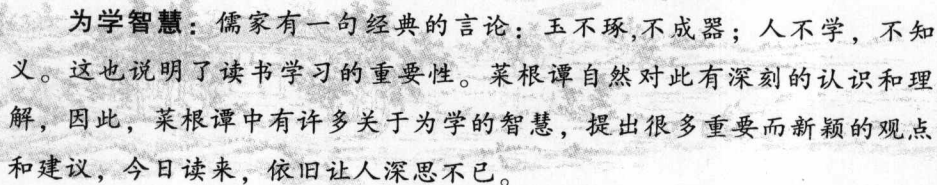 为学智慧：儒家有一句经典的言论：玉不琢,不成器；人不学，不知
义。这也说明了读书学习的重要性。菜根谭自然对此有深刻的认识和理
解，因此，菜根谭中有许多关于为学的智慧，提出很多重要而新颖的观点
和建议，今日读来，依旧让人深思不已。